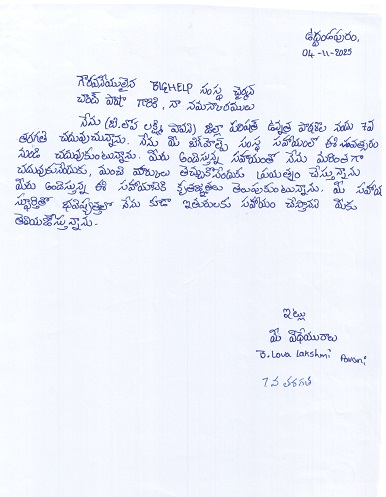 ఉద్దండపురం,
04-11-2025
గౌరవనీయులైన BIGHELP సంస్థ ఛైర్మన్
చాంద్ పాషా గారికి, నా నమస్కారములు
నేను (బి.లోవ లక్ష్మి పావని) జిల్లా పరిషత్ ఉన్నత పాఠశాల నందు 7వ
తరగతి చదువుచున్నాను. నేను మీ బిగ్‌హెల్ప్ సంస్థ సహాయంలో ఈ సంవత్సరం
నుండి చదువుకుంటున్నాను. మీరు అందిస్తున్న సహాయంతో నేను మరింతగా
చదువుకునేందుకు, మంచి మార్కులు తెచ్చుకొనేందుకు ప్రయత్నం చేస్తున్నాను
మీరు అందిస్తున్న ఈ సహాయానికి కృతజ్ఞతలు తెలుపుకుంటున్నాను. మీ సహాయ
స్ఫూర్తితో భవిష్యత్తులో నేను కూడా ఇతరులకు సహాయం చేస్తానని మీకు
తెలియజేస్తున్నాను.
ఇట్లు
మీ విధేయురాలు
B. Lova Lakshmi Pavani
7వ తరగతి